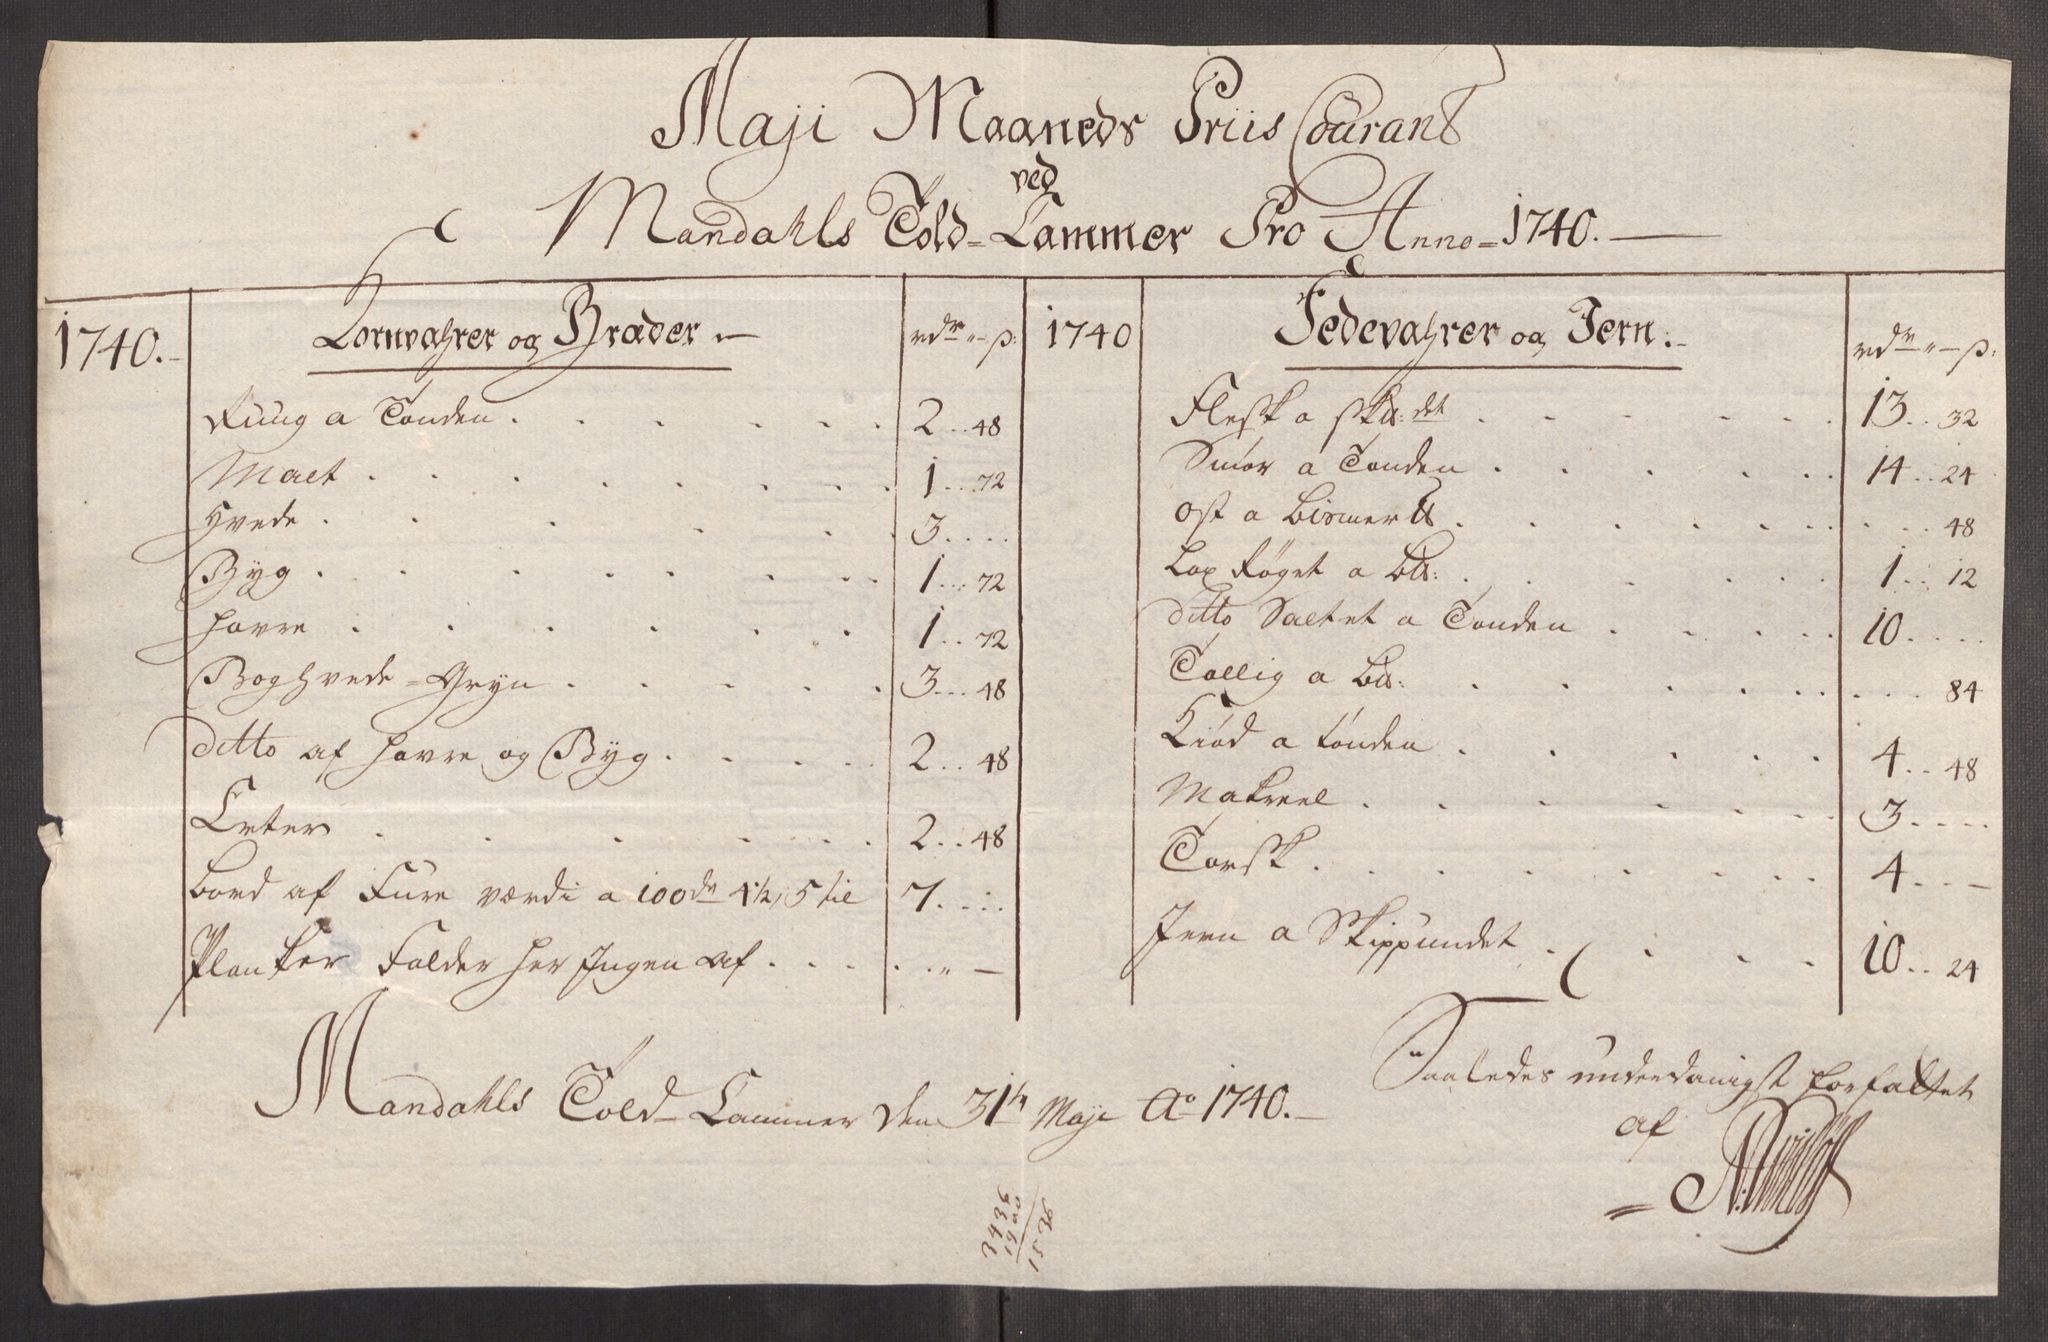 Maji Maaneds Priis Courant
ved
Mandahls Told-Cammer Pro Anno = 1740.
1740. Kornvahrer og Bræder rdr ß:
Ruug a Tønden 2 48
Malt 1 72
Hvede 3
Byg 1 72
Havre 1 72
Boghvede=Gryn 3 48
Ditto af Havre og Byg 2 48
Erter 2 48
Bord af Fure værdi a 100de 4 1/2, 5 til 7
Planker Falder her Ingen af
1740 Fedevahrer og Jern: rdr ß:
Flesk a sk℔:det 13 32
Smør a Tønden 14 24
Ost a Bismer ℔ 48
Lax Røget a B℔: 1 12
Ditto Saltet a Tønden 10
Tallig a B℔: 84
Kiød a tønden 4 48
Makreel 3
Torsk 4
Jern a Skippundet 10 24
Mandahls Told-Cammer den 31te Maji Ao 1740.
Saaledes underdanigst forfattet
af